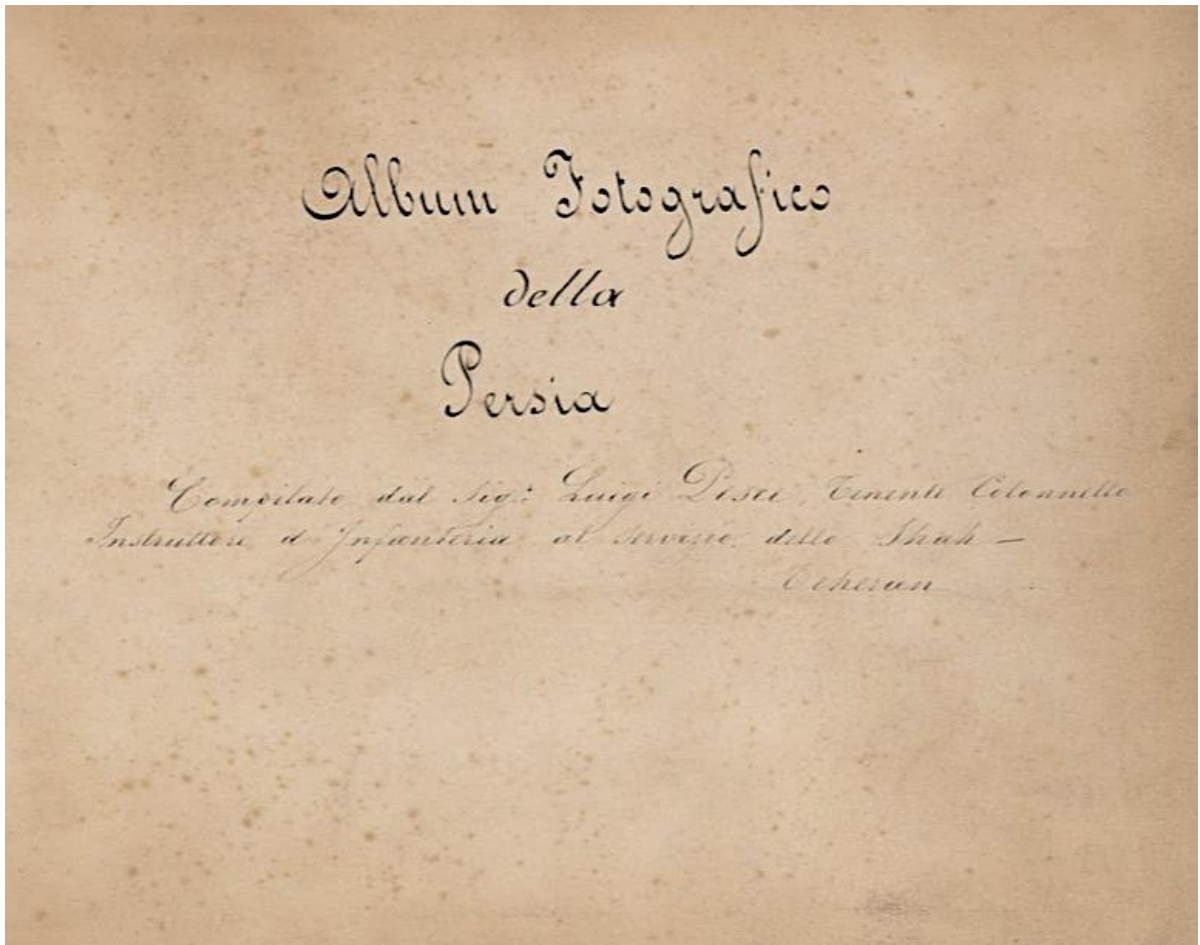 Album Fotografico
della
Persia
Compilato dal Sig: Luigi Pesce Tenente Colonnello
Instruttore d'Infanteria al servizio dello Shah —
Teheran